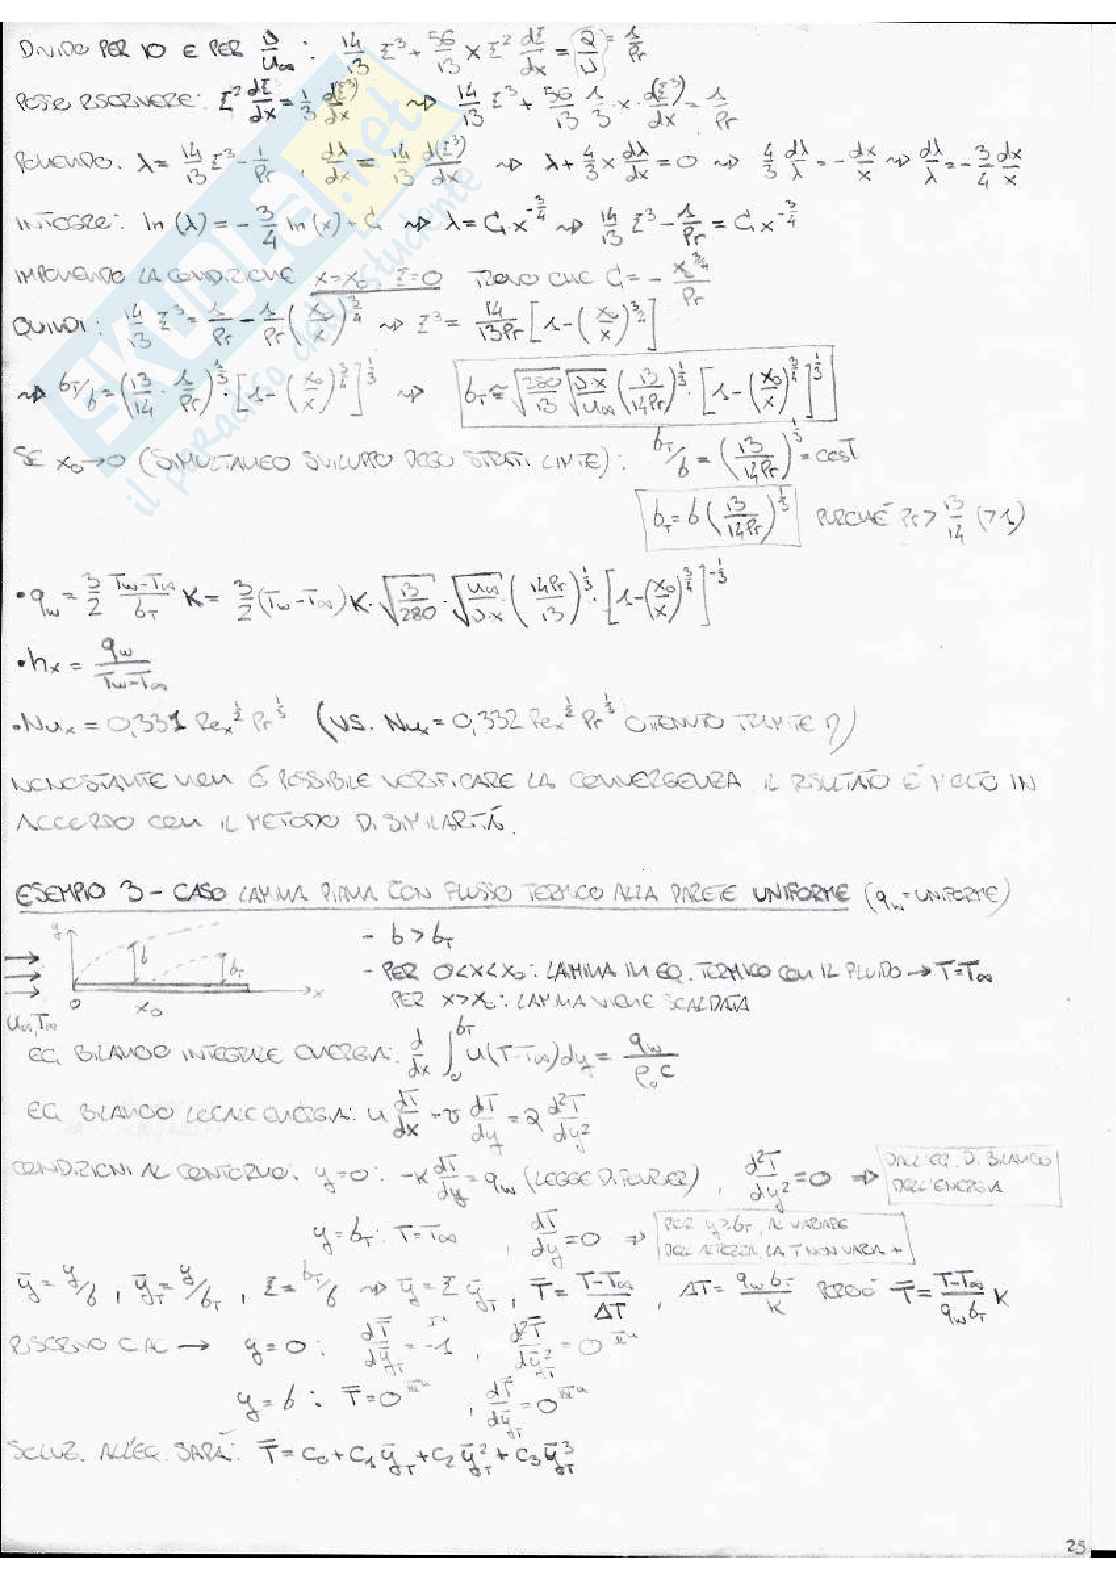 DIVIDO PER 10 E PER υ/u∞ : 14/13 Σ³ + 56/13 x Σ² dΣ/dx = (α/υ) = 1/Pr
POSSO RISCRIVERE: Σ² dΣ/dx = 1/3 d(Σ³)/dx ⇝ 14/13 Σ³ + 56/13 1/3 · x · d(Σ³)/dx = 1/Pr
PONENDO. λ = 14/13 Σ³ - 1/Pr , dλ/dx = 14/13 d(Σ³)/dx ⇝ λ + 4/3 x dλ/dx = 0 ⇝ 4/3 dλ/λ = - dx/x ⇝ dλ/λ = - 3/4 dx/x
INTEGRO: ln(λ) = - 3/4 ln(x) + C₁ ⇝ λ = C₁ x^(-3/4) ⇝ 14/13 Σ³ - 1/Pr = C₁ x^(-3/4)
IMPONENDO LA CONDIZIONE x=x₀ Σ=0 TROVO CHE C₁ = - x₀^(3/4)/Pr
QUINDI: 14/13 Σ³ = 1/Pr - 1/Pr (x₀/x)^(3/4) ⇝ Σ³ = 14/13Pr [1 - (x₀/x)^(3/2)]
⇝ δT/δ = (13/14 · 1/Pr)^(1/3) · [1 - (x₀/x)^(3/4)]^(1/3) ⇝ δT ≅ √(280/13) √(υ·x/u∞) (13/14Pr)^(1/3) · [1 - (x₀/x)^(3/4)]^(1/3)
SE x₀→0 (SIMULTANEO SVILUPPO DEGLI STRATI LIMITE): δT/δ = (13/14Pr)^(1/3) = cost
δT = δ (13/14Pr)^(1/3) PURCHÉ Pr > 13/14 (>1)
• qw = 3/2 (Tw-T∞)/δT K = 3/2 (Tw-T∞) K · √(13/280) · √(u∞/υ·x) · (14Pr/13)^(1/3) · [1 - (x₀/x)^(3/4)]^(-1/3)
• hx = qw/(Tw-T∞)
• Nux = 0,331 Rex^(1/2) Pr^(1/3) (VS. Nux = 0,332 Rex^(1/2) Pr^(1/3) OTTENUTO TRAMITE η)
NONOSTANTE NON È POSSIBILE VERIFICARE LA CONVERGENZA IL RISULTATO È MOLTO IN
ACCORDO CON IL METODO DI SIMILARITÀ.
ESEMPIO 3 - CASO LAMINA PIANA CON FLUSSO TERMICO ALLA PARETE UNIFORME (qw = UNIFORME)
y δ δT x
0 x₀
u∞, T∞
- δ > δT
- PER 0<x<x₀: LAMINA IN EQ. TERMICO CON IL FLUIDO → T=T∞
PER x>x₀: LAMINA VIENE SCALDATA
EQ. BILANCIO INTEGRALE ENERGIA: d/dx ∫₀^δT u(T-T∞)dy = qw/ρ₀c
EQ BILANCIO LOCALE ENERGIA: u dT/dx + v dT/dy = α d²T/dy²
CONDIZIONI AL CONTORNO: y=0: -K dT/dy = qw (LEGGE DI FOURIER) , d²T/dy² = 0 ⇒ DALL'EQ. DI BILANCIO
DELL'ENERGIA
y=δT: T=T∞ , dT/dy = 0 ⇒ PER y>δT, AL VARIARE
DELL'ALTEZZA, LA T NON VARIA +
ȳ = y/δ , ȳT = y/δT , Σ = δT/δ ⇝ ȳ = Σ ȳT , T̄ = (T-T∞)/ΔT , ΔT = qw δT/K PERCIÒ T̄ = (T-T∞)/(qw δT) K
RISCRIVO C AC → y=0: dT̄/dȳT = -1 , d²T̄/dȳT² = 0
y=δ: T̄=0 , dT̄/dȳT = 0
SOLUZ. ALL'EQ. SARÀ: T̄ = C₀ + C₁ȳT + C₂ȳT² + C₃ȳT³
25
SKUOLA.net
il paradiso dello studente